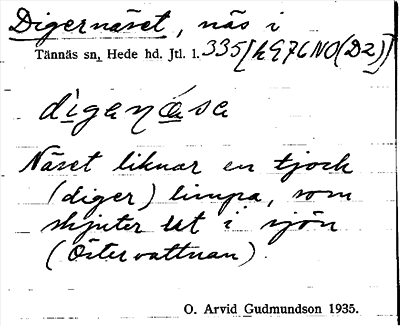 Digernäset, näs i
Tännäs sn, Hede hd. Jtl. l. 335[h976NO(D2)]
digeṇása
Näset liknar en tjock
(diger) limpa, som
skjuter ut i sjön
(Östervattnan).
O. Arvid Gudmundson 1935.